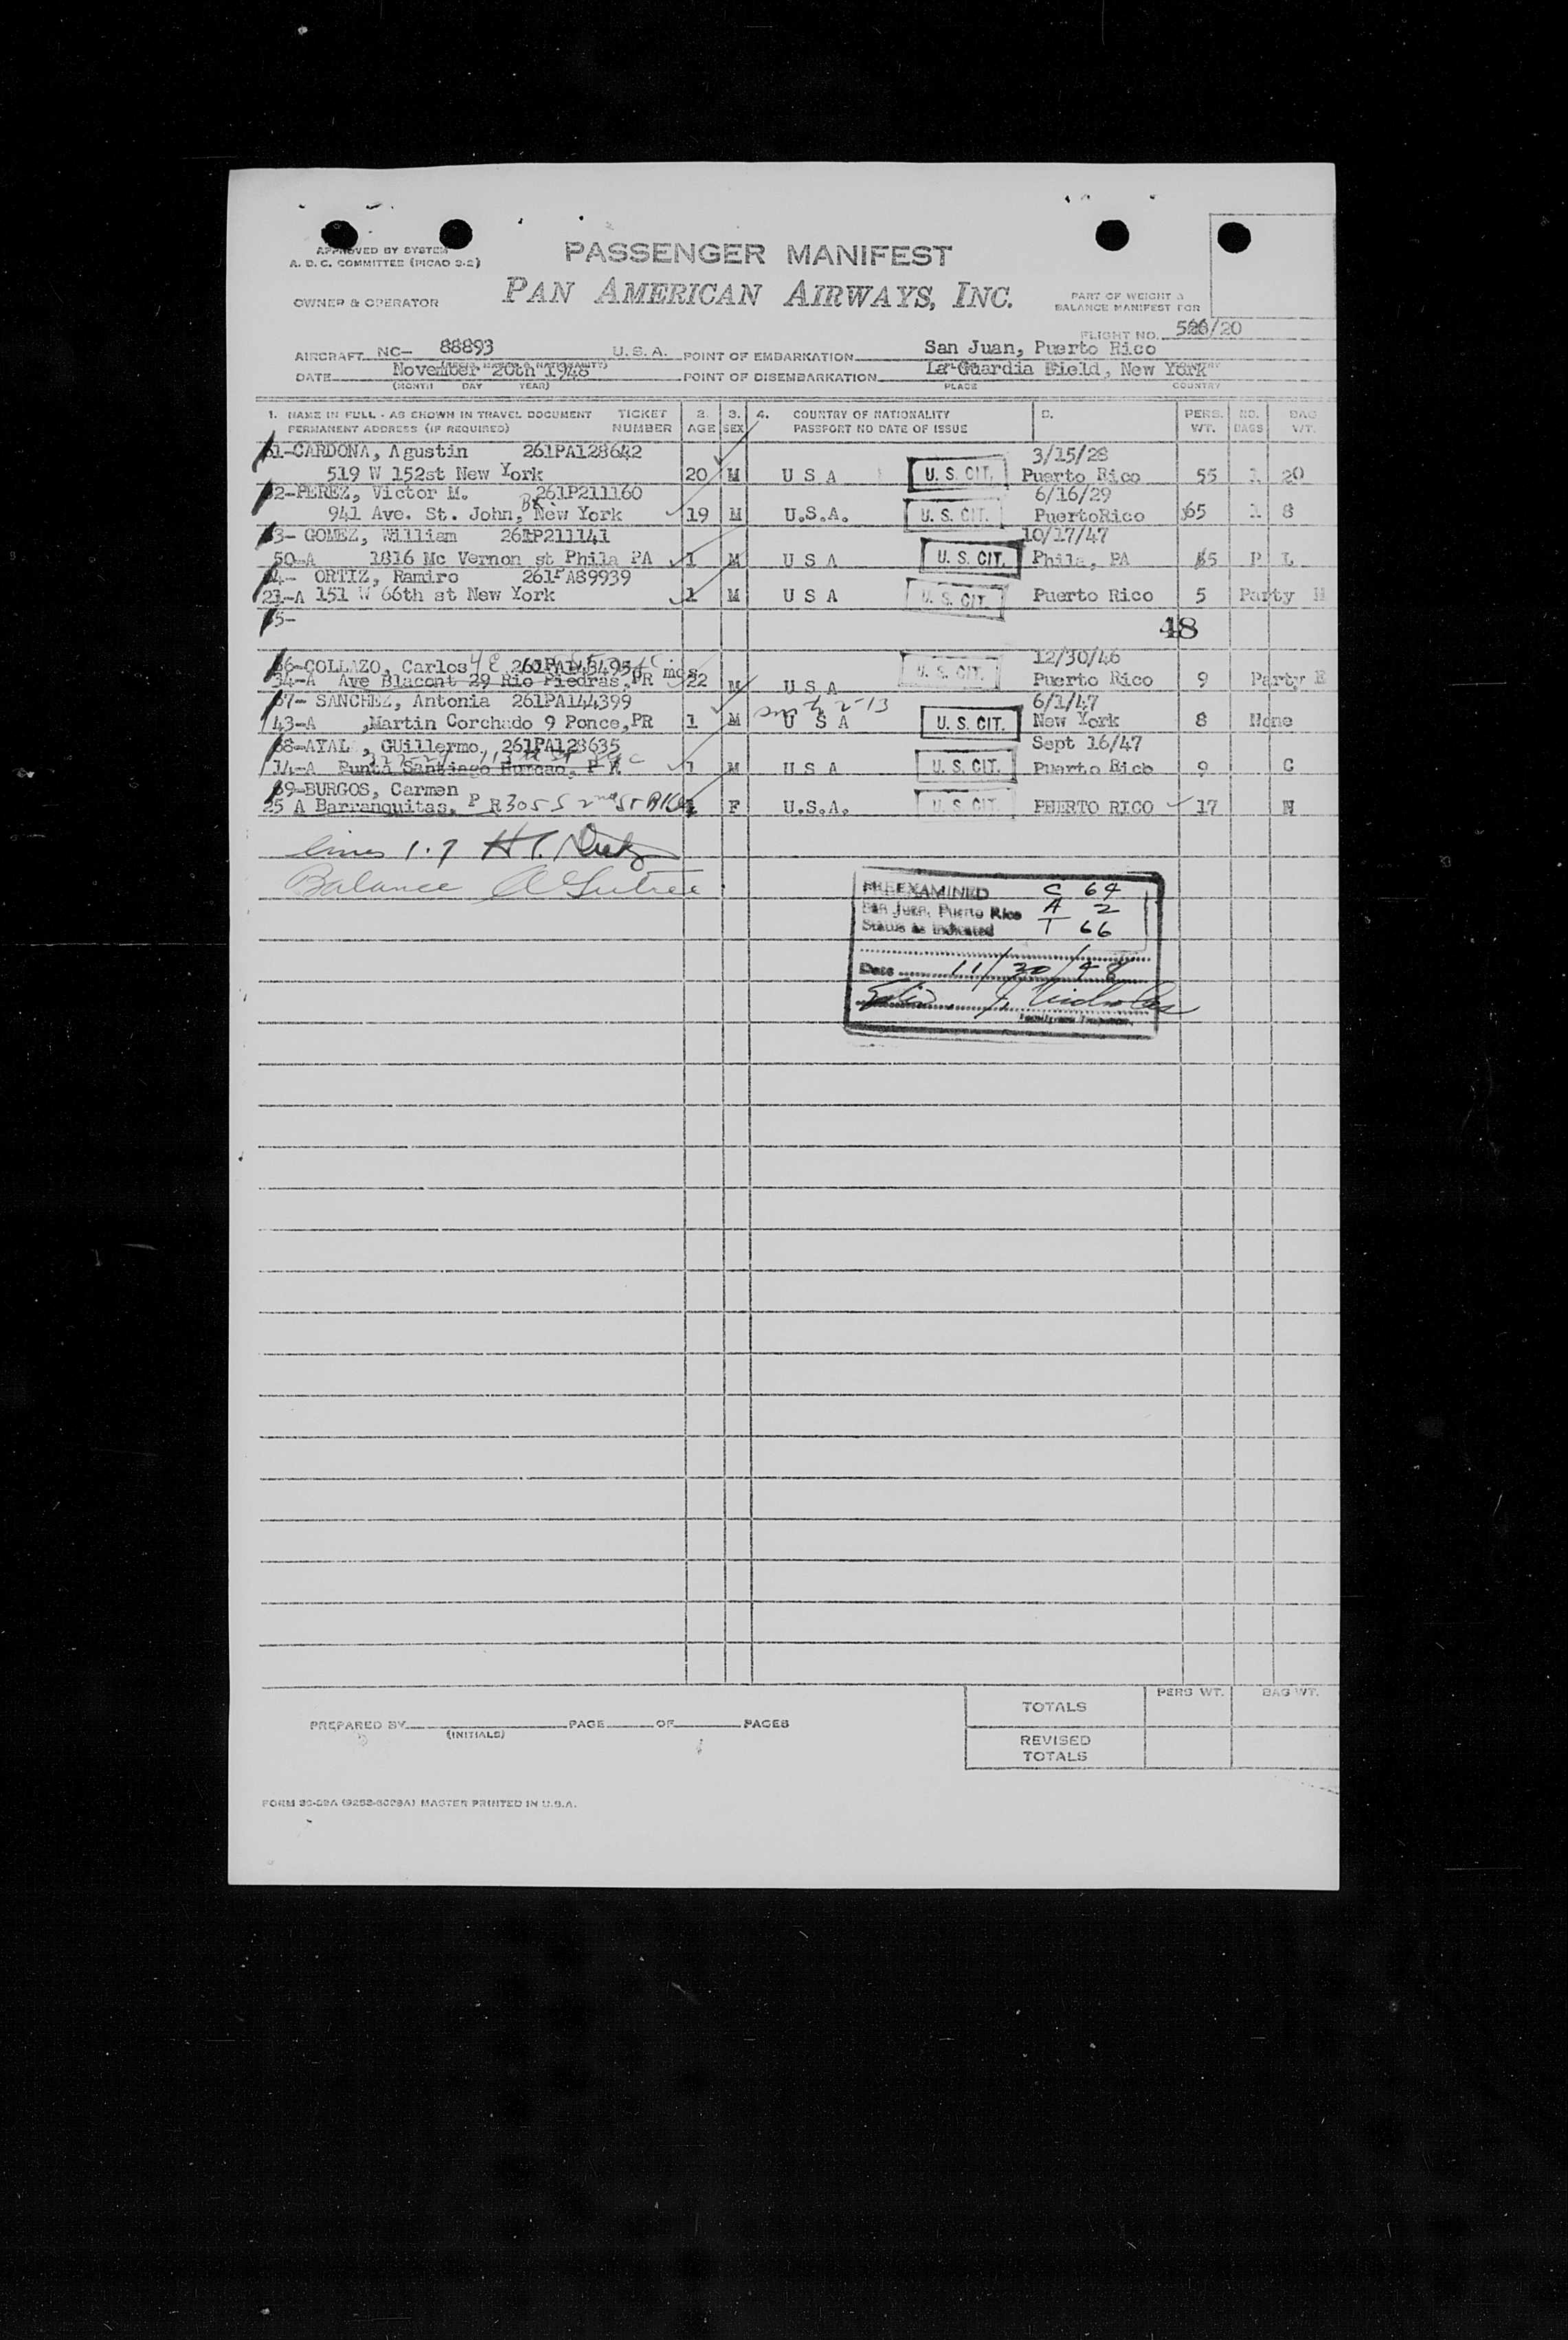 APPROVED BY SYSTEM
A. D. C. COMMITTEE (PICAO 9-2)
PASSENGER MANIFEST
PAN AMERICAN AIRWAYS, INC.
OWNER & OPERATOR
PART OF WEIGHT &
BALANCE MANIFEST FOR
FLIGHT NO. /20
AIRCRAFT NC- 88893 U. S. A. POINT OF EMBARKATION San Juan, Puerto Rico
DATE November 20th 1948 POINT OF DISEMBARKATION La Guardia Field, New York
(MONTH DAY YEAR) PLACE COUNTRY
1. NAME IN FULL - AS SHOWN IN TRAVEL DOCUMENT TICKET 2. 3. 4. COUNTRY OF NATIONALITY PERS. NO. BAG
PERMANENT ADDRESS (IF REQUIRED) NUMBER AGE SEX PASSPORT NO DATE OF ISSUE WT. BAGS WT.
1-CARDONA, Agustin 261PA128642 3/15/28
519 W 152st New York 20 M U S A U. S. CIT. Puerto Rico 55 1 20
2-PEREZ, Victor M. 261P211160 6/16/29
941 Ave. St. John, Bx. New York 19 M U.S.A. U. S. CIT. PuertoRico 65 1 8
3- GOMEZ, William 261P211141 10/17/47
50-A 1816 Mc Vernon st Phila PA 1 M U S A U. S. CIT. Phila, PA 5 P L
4- ORTIZ, Ramiro 261PA89939
21-A 151 W 66th st New York 1 M U S A U. S. CIT. Puerto Rico 5 Party H
5-
48
66-COLLAZO, Carlos 12/30/46
34-A Ave Blacont 29 Rio Piedras, PR mos 22 M U S A U. S. CIT. Puerto Rico 9 Party E
67- SANCHEZ, Antonia 261PA144399 6/1/47
43-A ,Martin Corchado 9 Ponce,PR 1 M U S A U. S. CIT. New York 8 None
68-AYAL , GUillermo, 261PA128635 Sept 16/47
14-A Punta Santiago Humcao, P R 1 M U S A U. S. CIT. Puerto Rico 9 C
69-BURGOS, Carmen
25 A Barranquitas, P R 305 S 2nd St F U.S.A. U. S. CIT. PUERTO RICO 17 N
lines 1-7
Balance
PREEXAMINED C 64
San Juan, Puerto Rico A 2
Status as indicated T 66
Date 11/20/48
Immigrant Inspector.
TOTALS PERS WT. BAG WT.
PREPARED BY PAGE OF PAGES
(INITIALS)
REVISED
TOTALS
MASTER PRINTED IN U.S.A.